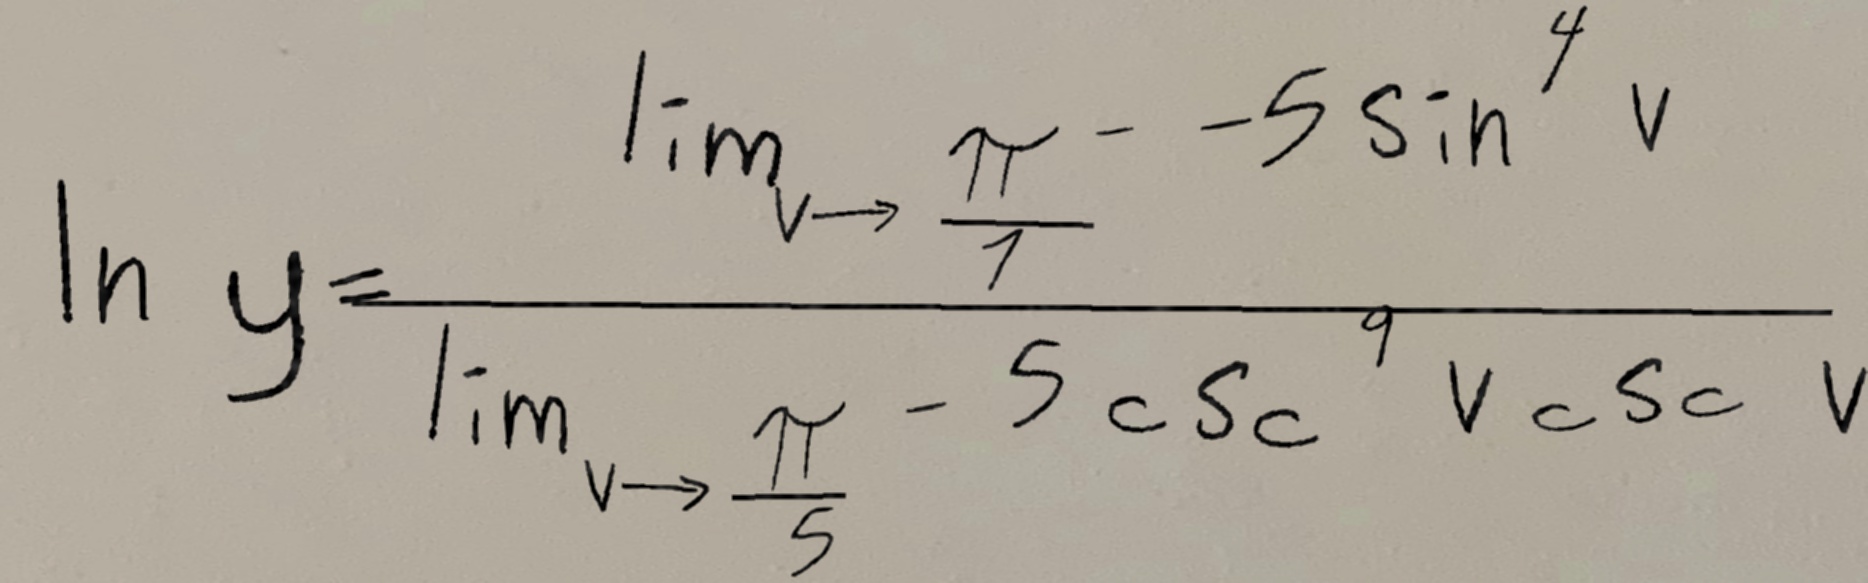 \ln y = \frac{\lim_{v \to \frac{\pi}{7}^{-}} -5 \sin^{4} v}{\lim_{v \to \frac{\pi}{5}^{-}} 5 \csc^{9} v \csc v}